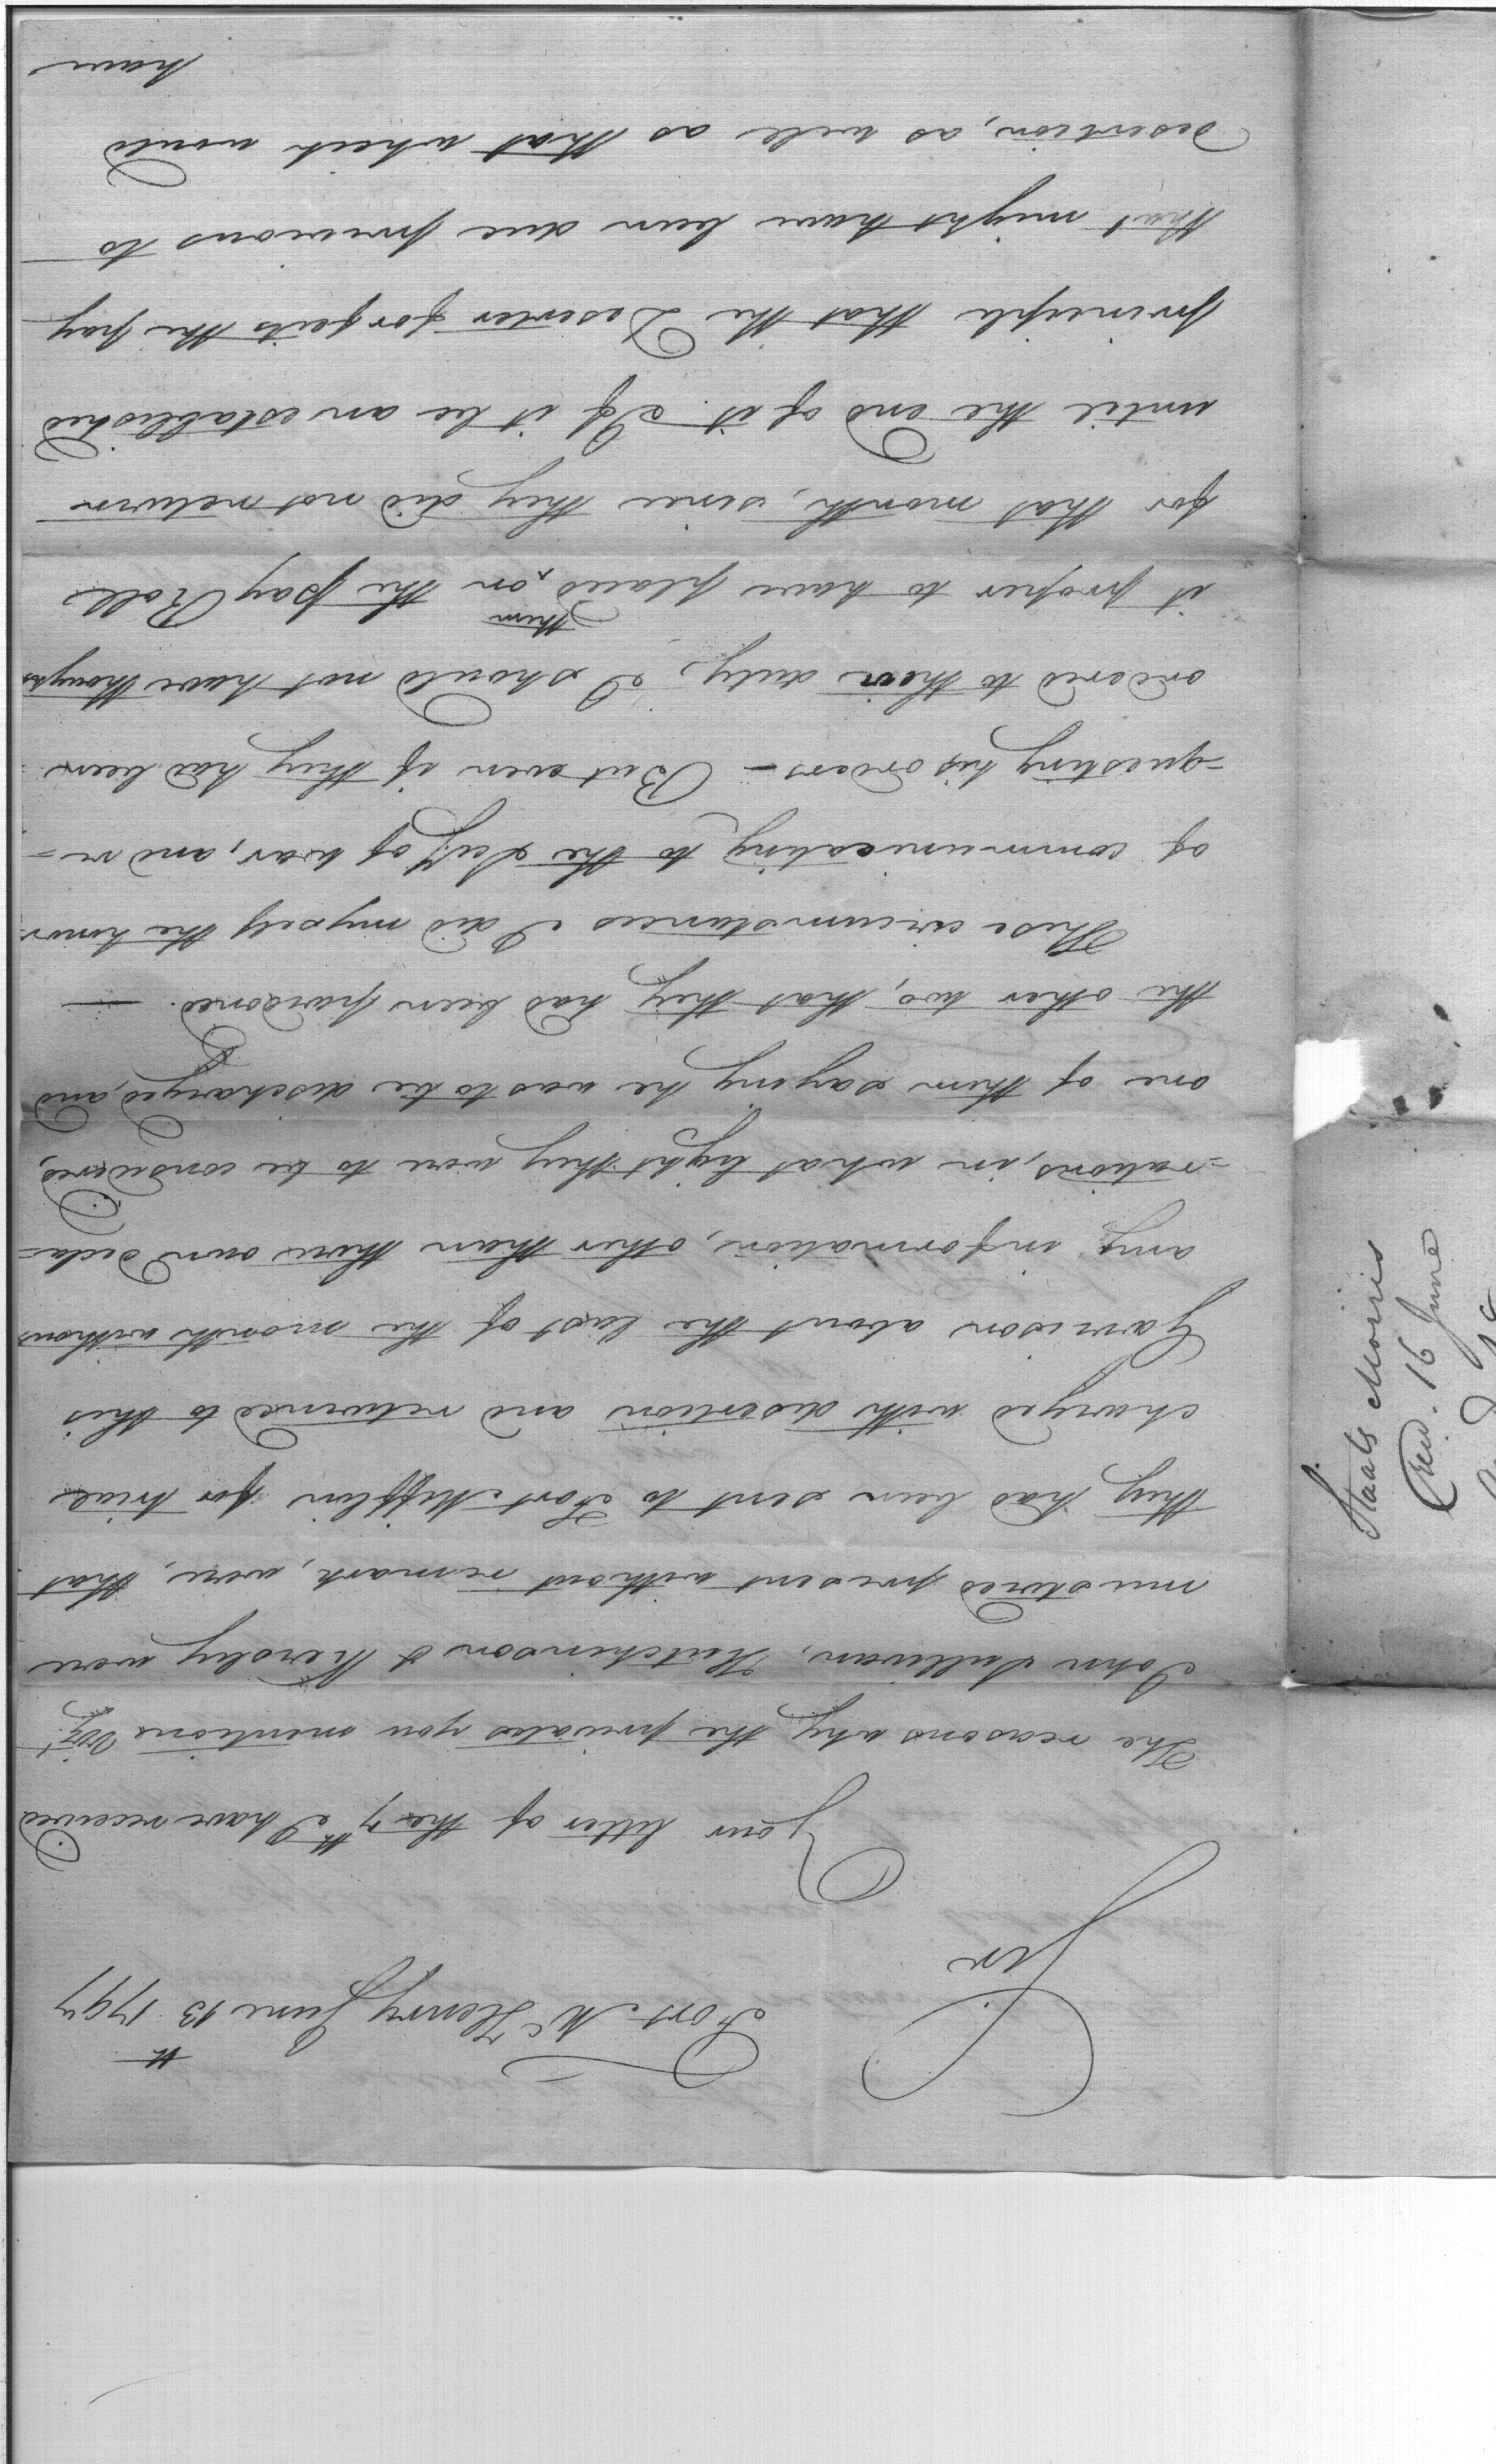 Fort McHenry June 13th 1797
Sir
Your letter of the 7th I have received
The reasons why the privates you mention Vizt
John Sullivan, Hutchinson & Kersley were
mustered present without remark, were, that
they had been sent to Fort Mifflin for trial
charged with desertion and returned to this
Garrison about the last of the month without
any information, other than their own decla=
=rations, in what light they were to be considered,
one of them saying he was to be discharged, and
the other two, that they had been pardoned. —
These circumstances I did myself the honor
of communicating to the Secy. of War, and re=
=questing his orders — But even if they had been
ordered to their duty, I should not have thought
it proper to have placed them on the pay Roll
for that month, since they did not return
until the end of it. If it be an established
principle that the Deserter forfeits the pay
that might have been due previous to
desertion, as well as that which would
have
Staats Morris
Recd. 16 June